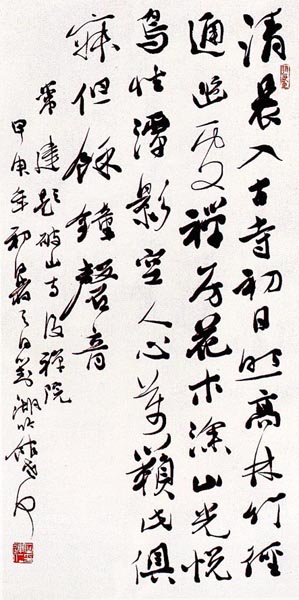 清晨入古寺初日照高林竹徑
通幽處禪房花木深山光悅
鳥性潭影空人心萬籟此俱
寂但餘鐘磬音
常建題破山寺後禪院
年初暑之日